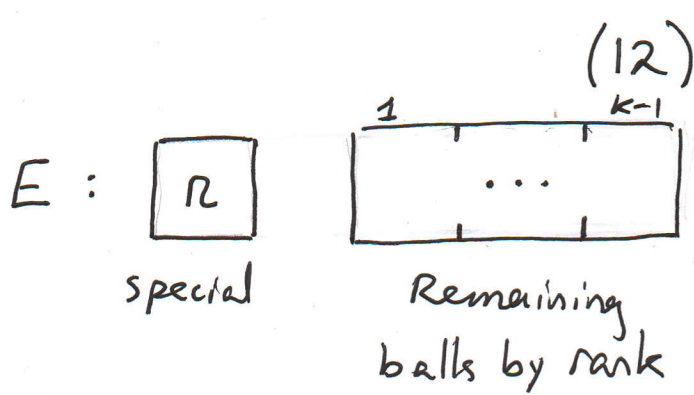 (12)
1 K-1
E : n ...
special Remaining
balls by rank